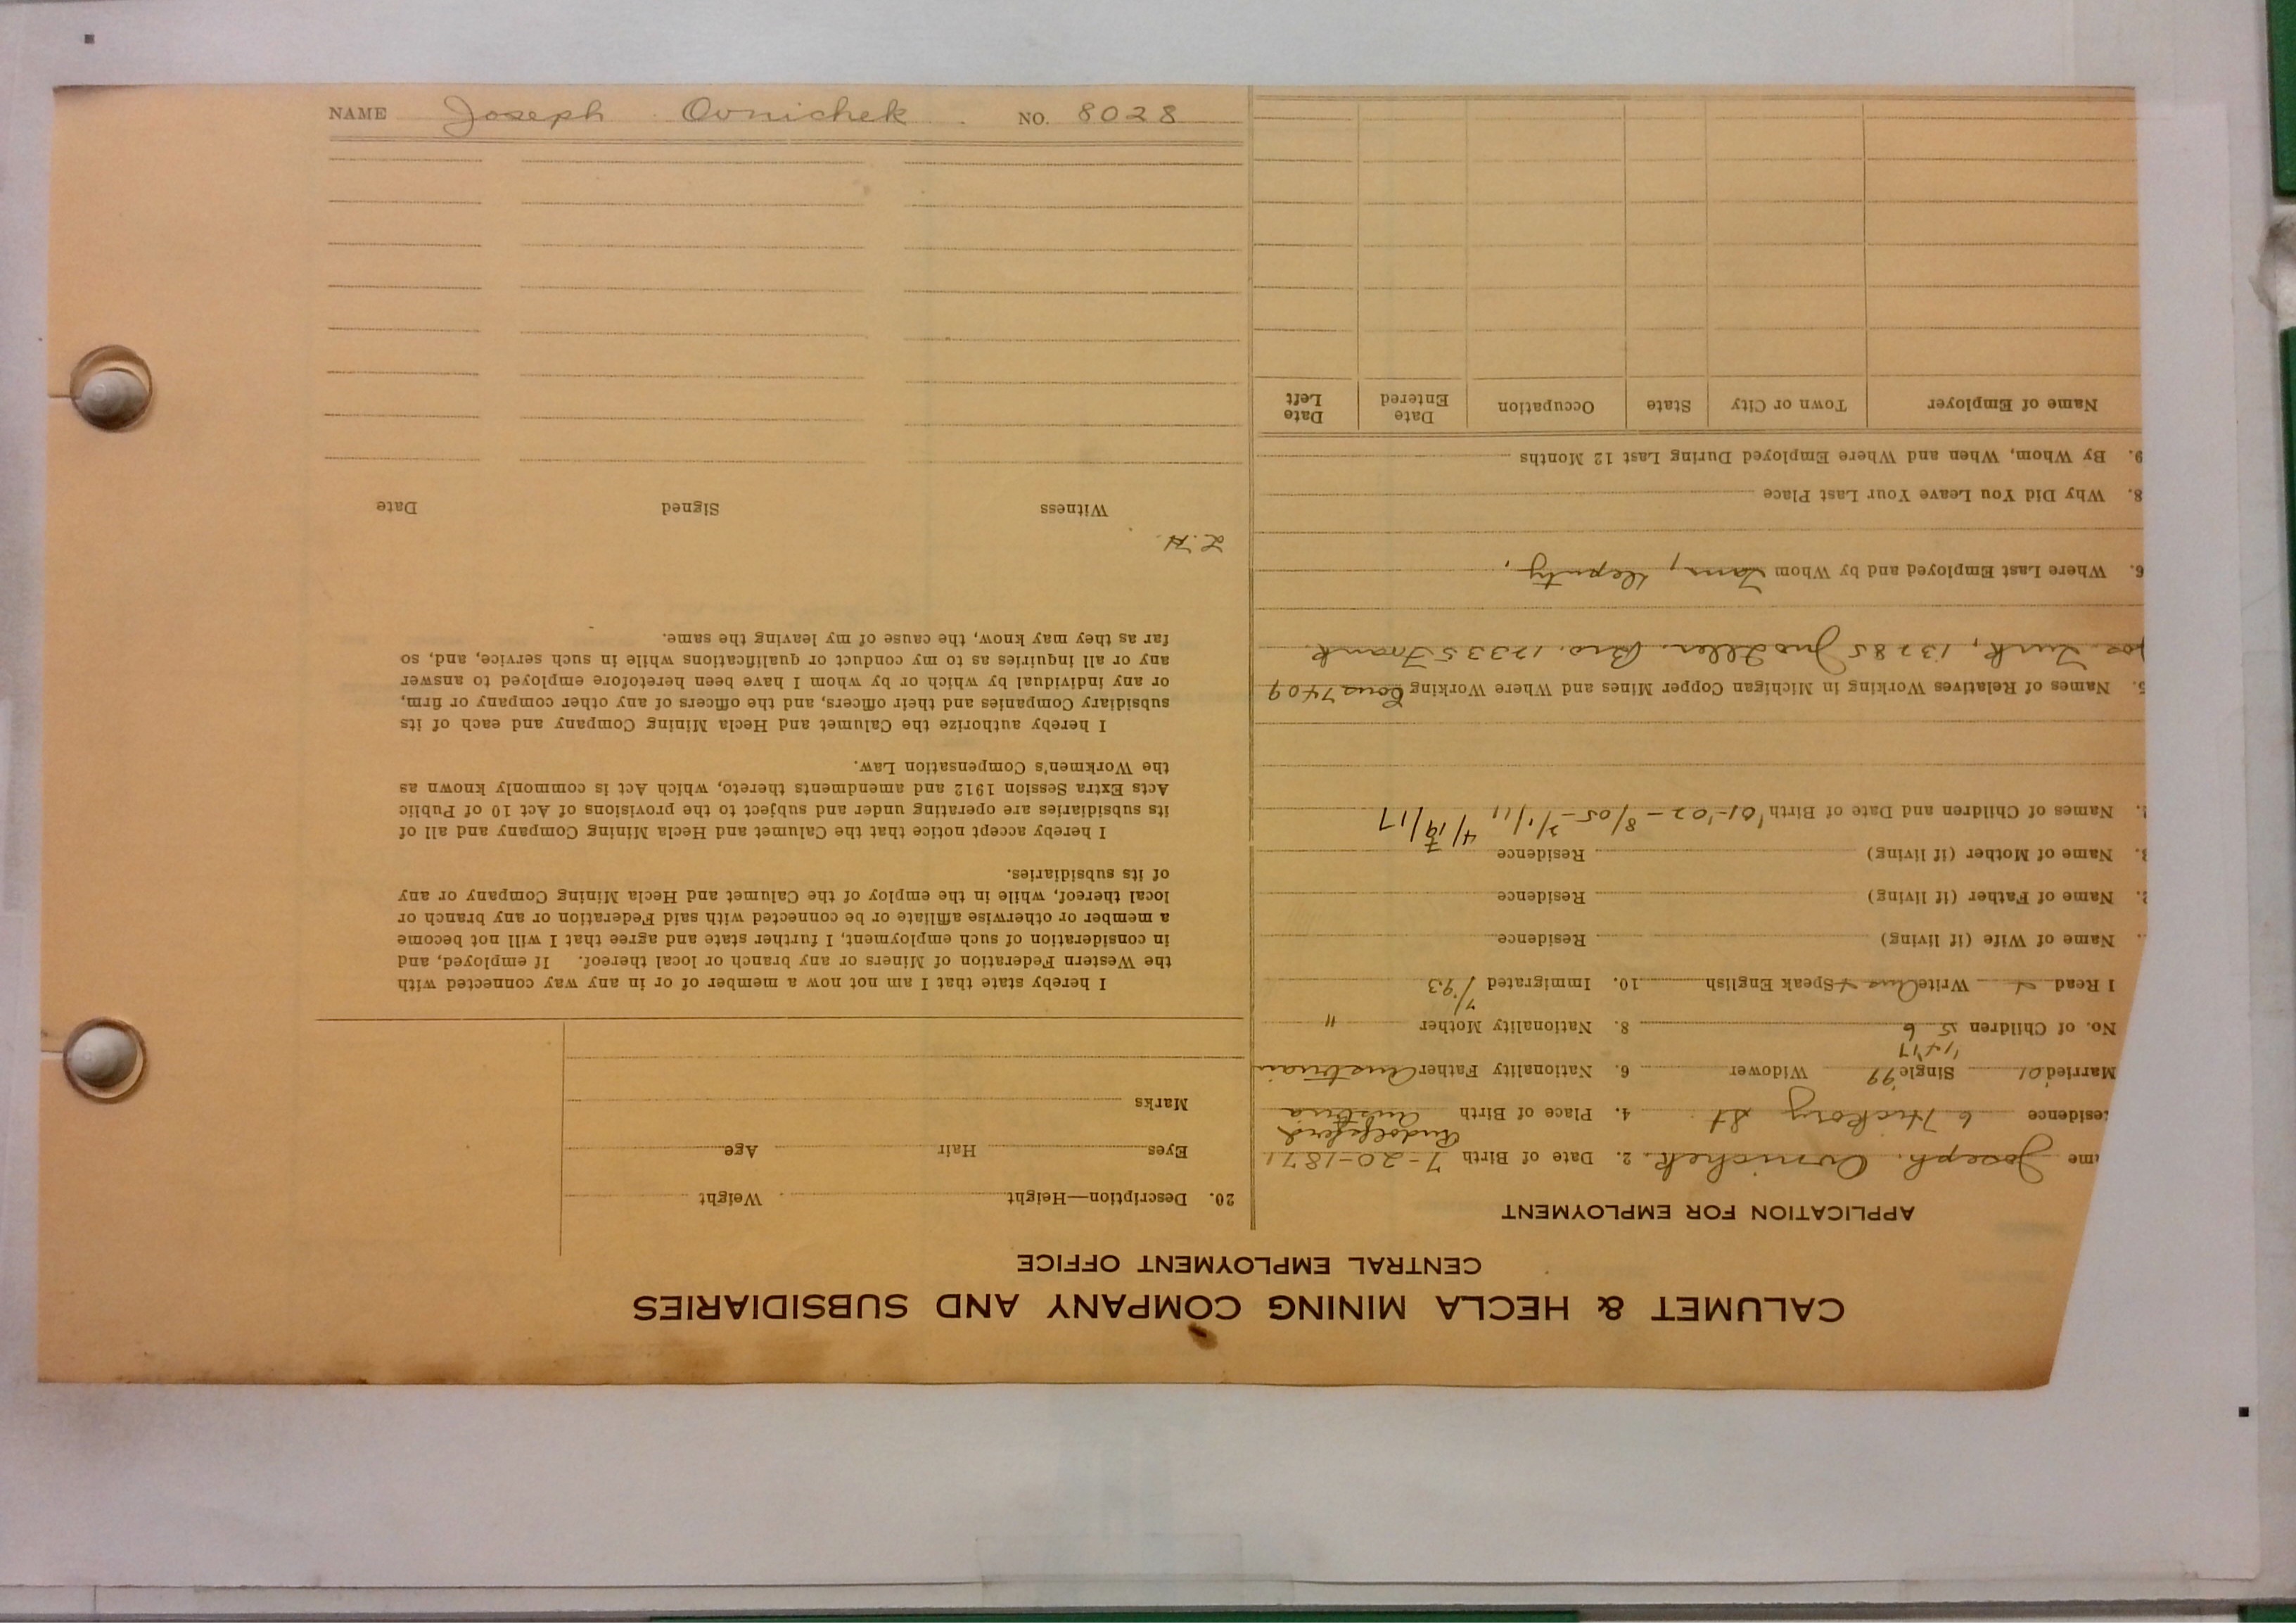 NAME Joseph Ovnichek NO. 8028
CALUMET & HECLA MINING COMPANY AND SUBSIDIARIES
CENTRAL EMPLOYMENT OFFICE
APPLICATION FOR EMPLOYMENT
me Joseph Ovnichek. 2. Date of Birth 7-20-1871
Rudolfsferd
esidence 6 Hickory St 4. Place of Birth Austria
Married '01 Single '99 Widower 6. Nationality Father Austrian
'14 '17
No. of Children 5 6 8. Nationality Mother "
I Read Write Aus + Speak English 10. Immigrated 7/93
Name of Wife (if living) Residence
2. Name of Father (if living) Residence
3. Name of Mother (if living) Residence
Names of Children and Date of Birth '01-'02-8/05-2/1/11
4/19/17
5. Names of Relatives Working in Michigan Copper Mines and Where Working Cous 7409
Joe Turk, 13285 Jno Iller. Bro. 12335 Frank
6. Where Last Employed and by Whom Tam, Deputy,
8. Why Did You Leave Your Last Place
9. By Whom, When and Where Employed During Last 12 Months
Name of Employer Town or City State Occupation Date Entered Date Left
20. Description—Height Weight
Eyes Hair Age
Marks
I hereby state that I am not now a member of or in any way connected with
the Western Federation of Miners or any branch or local thereof. If employed, and
in consideration of such employment, I further state and agree that I will not become
a member or otherwise affiliate or be connected with said Federation or any branch or
local thereof, while in the employ of the Calumet and Hecla Mining Company or any
of its subsidiaries.
I hereby accept notice that the Calumet and Hecla Mining Company and all of
its subsidiaries are operating under and subject to the provisions of Act 10 of Public
Acts Extra Session 1912 and amendments thereto, which Act is commonly known as
the Workmen's Compensation Law.
I hereby authorize the Calumet and Hecla Mining Company and each of its
subsidiary Companies and their officers, and the officers of any other company or firm,
or any individual by which or by whom I have been heretofore employed to answer
any or all inquiries as to my conduct or qualifications while in such service, and, so
far as they may know, the cause of my leaving the same.
L.H.
Witness Signed Date